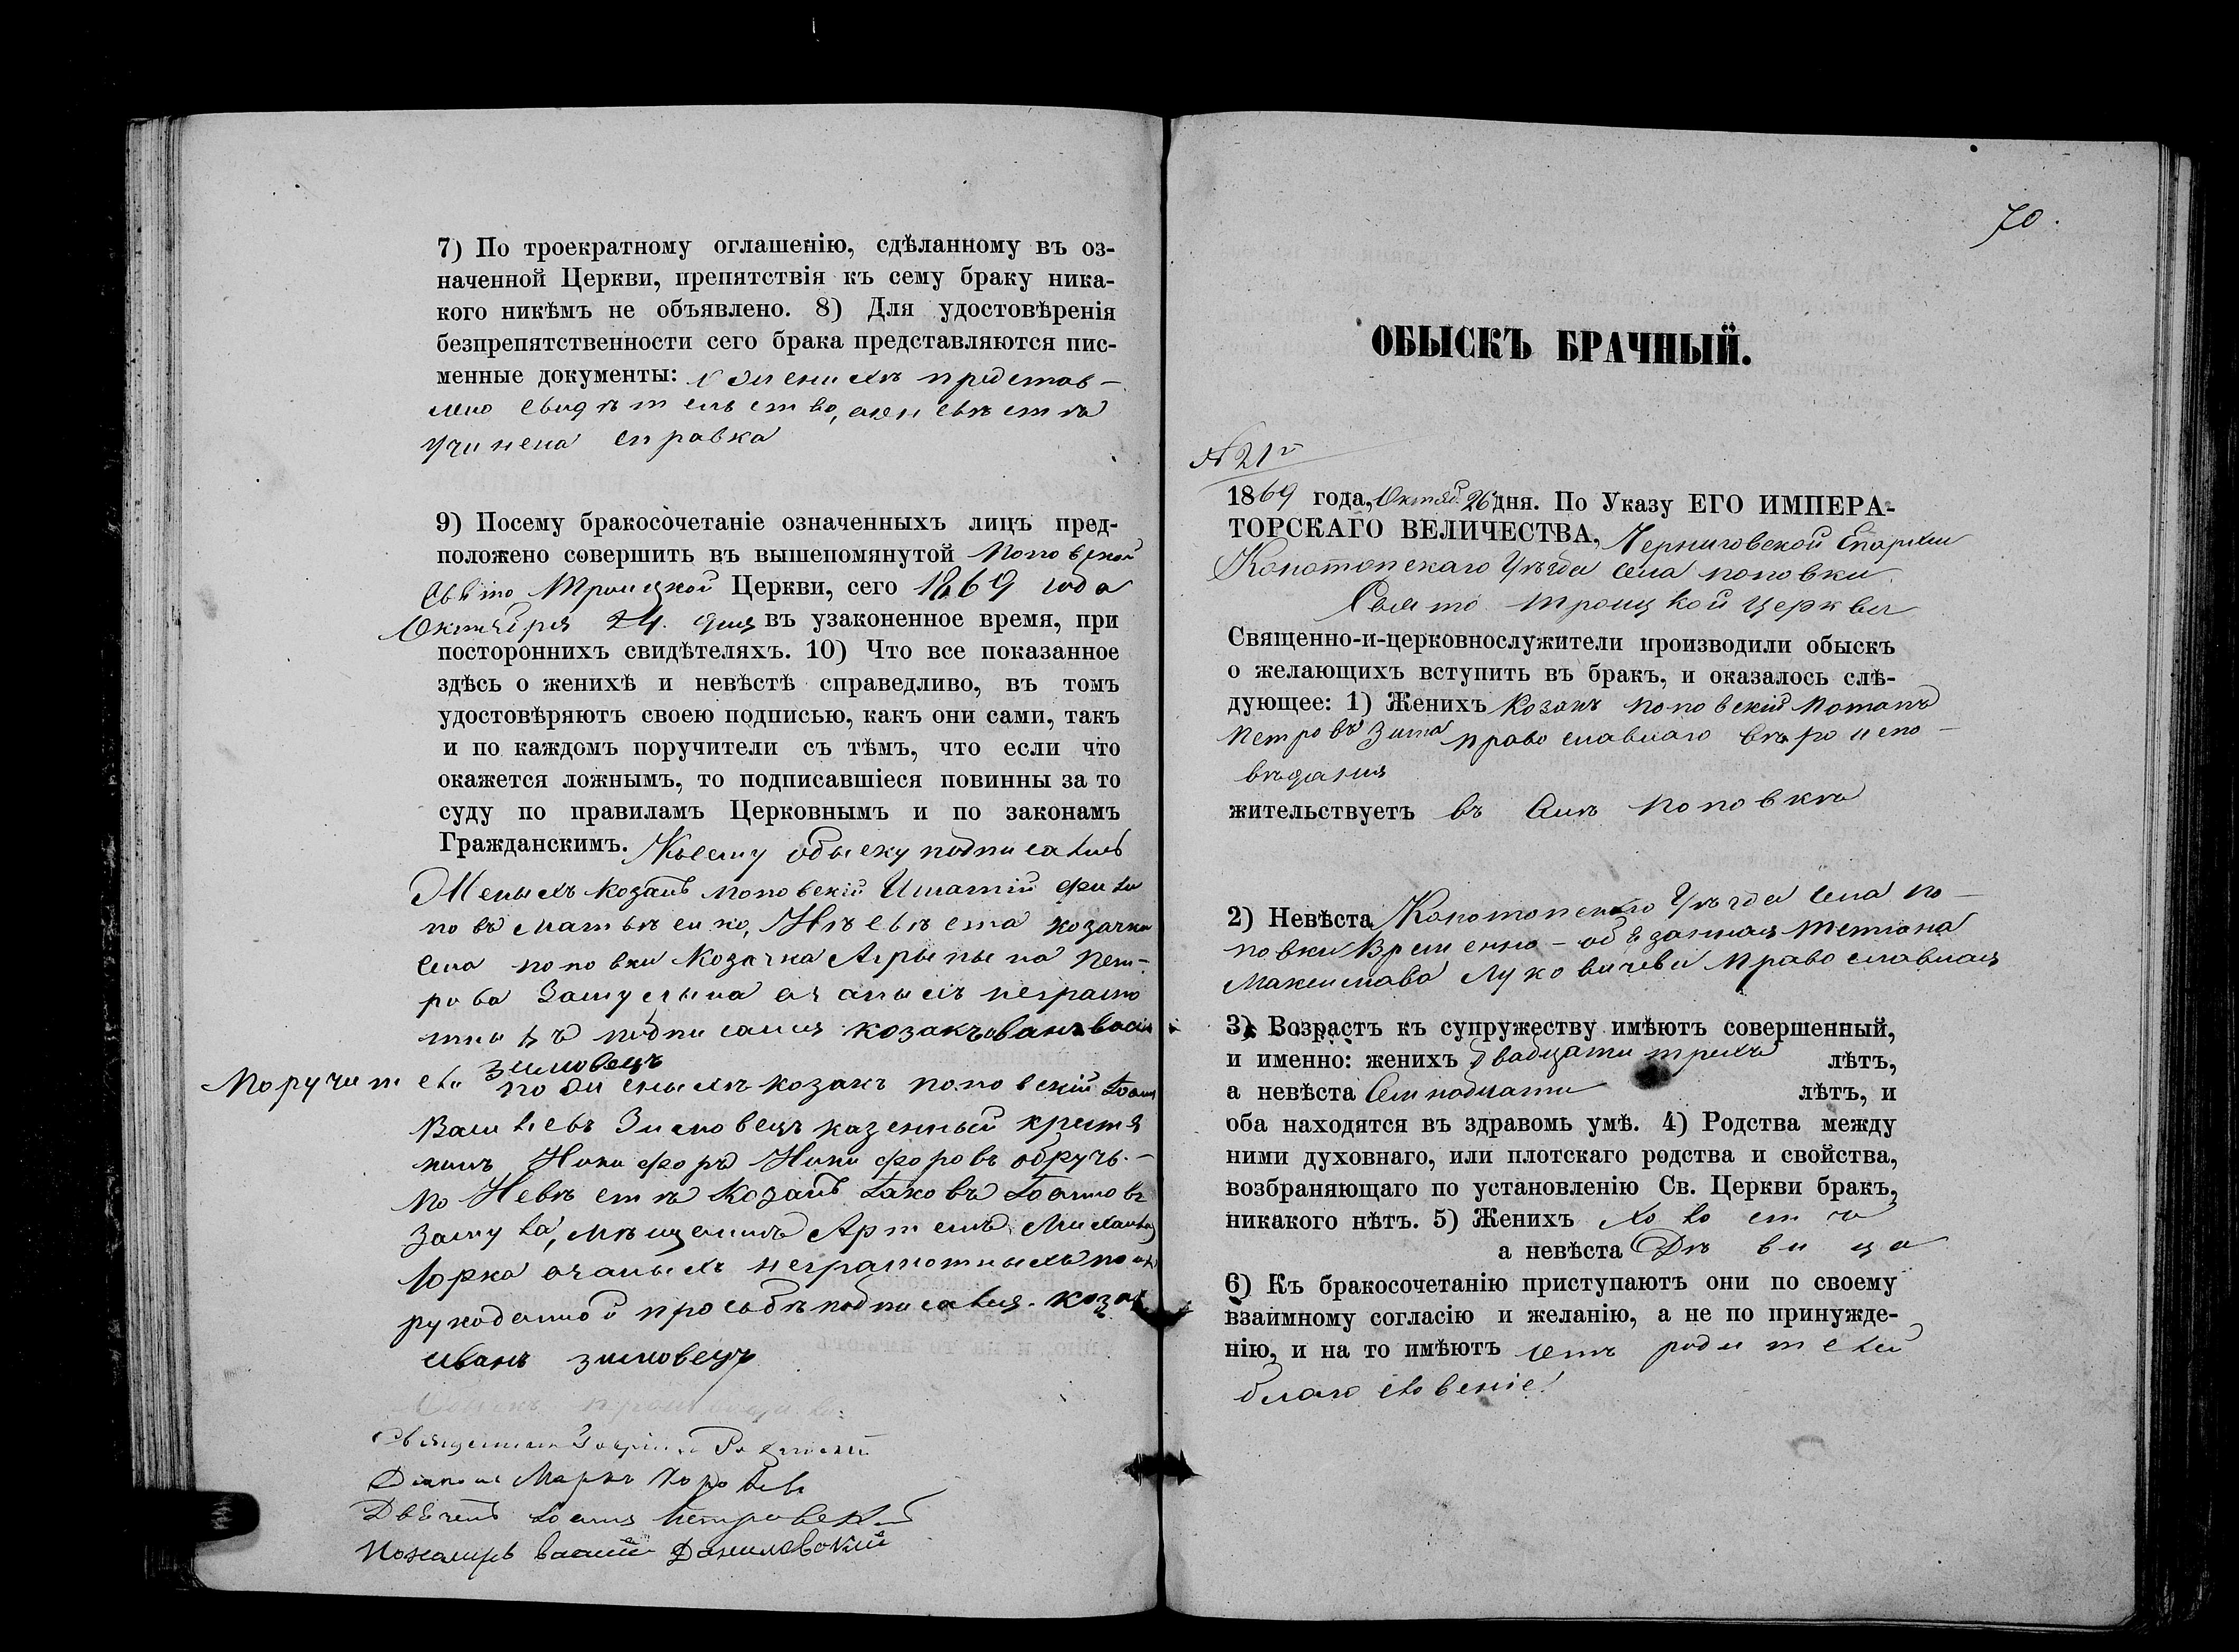 7) По троекратному оглашенію, сдѣланному въ оз-
наченной Церкви, препятствія къ сему браку ника-
кого никѣмъ не объявлено. 8) Для удостовѣренія
безпрепятственности сего брака представляются пис-
менные документы: о женихѣ представ-
лено свидѣтельство, а о невѣстѣ
учинена справка
9) Посему бракосочетаніе означенныхъ лицъ пред-
положено совершить въ вышепомянутой Поповской
Свято Троицкой Церкви, сего 1869 года
Октября 24. дня въ узаконенное время, при
постороннихъ свидѣтеляхъ. 10) Что все показанное
здѣсь о женихѣ и невѣстѣ справедливо, въ томъ
удостовѣряютъ своею подписью, какъ они сами, такъ
и по каждомъ поручители съ тѣмъ, что если что
окажется ложнымъ, то подписавшіеся повинны за то
суду по правиламъ Церковнымъ и по законамъ
Гражданскимъ. К сему обыску подписались
Женихъ козакъ поповскій Игнатій Фили
повъ Матвѣенко, Невѣста козачка
села поповки Козачка
козакъ иванъ
зимовецъ
Поручители по женихѣ козакъ поповскій Іоанъ
Василіевъ Зимовецъ казенный крестья
нинъ Никифоръ Никифоровъ
по Невѣстѣ Козакъ Іаковъ
мѣщанинъ Артемъ
Юрка а за ныхъ неграмотныхъ по ихъ
рукоданной прозьбѣ подписался. козакъ
иванъ зимовецъ
Священникъ
Діаконъ Маркъ
Дьячекъ Іоаннъ Петровскій
Пономарь Василій Даниловскій
70.
ОБЫСКЪ БРАЧНЫЙ.
№ 21й
1869 года, Октяб. 26 дня. По Указу ЕГО ИМПЕРА-
ТОРСКАГО ВЕЛИЧЕСТВА, Черниговской Епархіи
Конотопскаго Уѣзда села поповки
Свято троицкой церкви
Священно-и-церковнослужители производили обыскъ
о желающихъ вступить въ бракъ, и оказалось слѣ-
дующее: 1) Женихъ Козакъ поповскій Потапъ
Петровъ Зима православнаго вѣроиспо-
вѣданія
жительствуетъ въ селѣ поповкѣ
2) Невѣста Конотопскаго Уѣзда села по-
повки Временно-обязанная Татіана
Максимова православная
3) Возрастъ къ супружеству имѣютъ совершенный,
и именно: женихъ двадцати трехъ лѣтъ,
а невѣста Семнадцати лѣтъ, и
оба находятся въ здравомъ умѣ. 4) Родства между
ними духовнаго, или плотскаго родства и свойства,
возбраняющаго по установленію Св. Церкви бракъ,
никакого нѣтъ. 5) Женихъ холостъ
а невѣста Дѣвица
6) Къ бракосочетанію приступаютъ они по своему
взаимному согласію и желанію, а не по принужде-
нію, и на то имѣютъ отъ родителей
благословеніе!